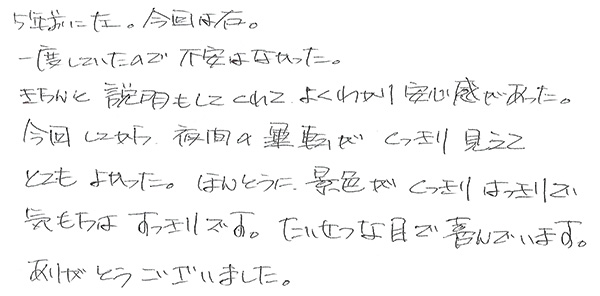 5年前に左。今回は右。
一度していたので不安はなかった。
きちんと説明もしてくれて、よくわかり安心感があった。
今回してから、夜間の運転がくっきり見えて
とてもよかった。ほんとうに、景色がくっきりはっきりで、
気もちはすっきりです。たいせつな目で喜んでいます。
ありがとうございました。